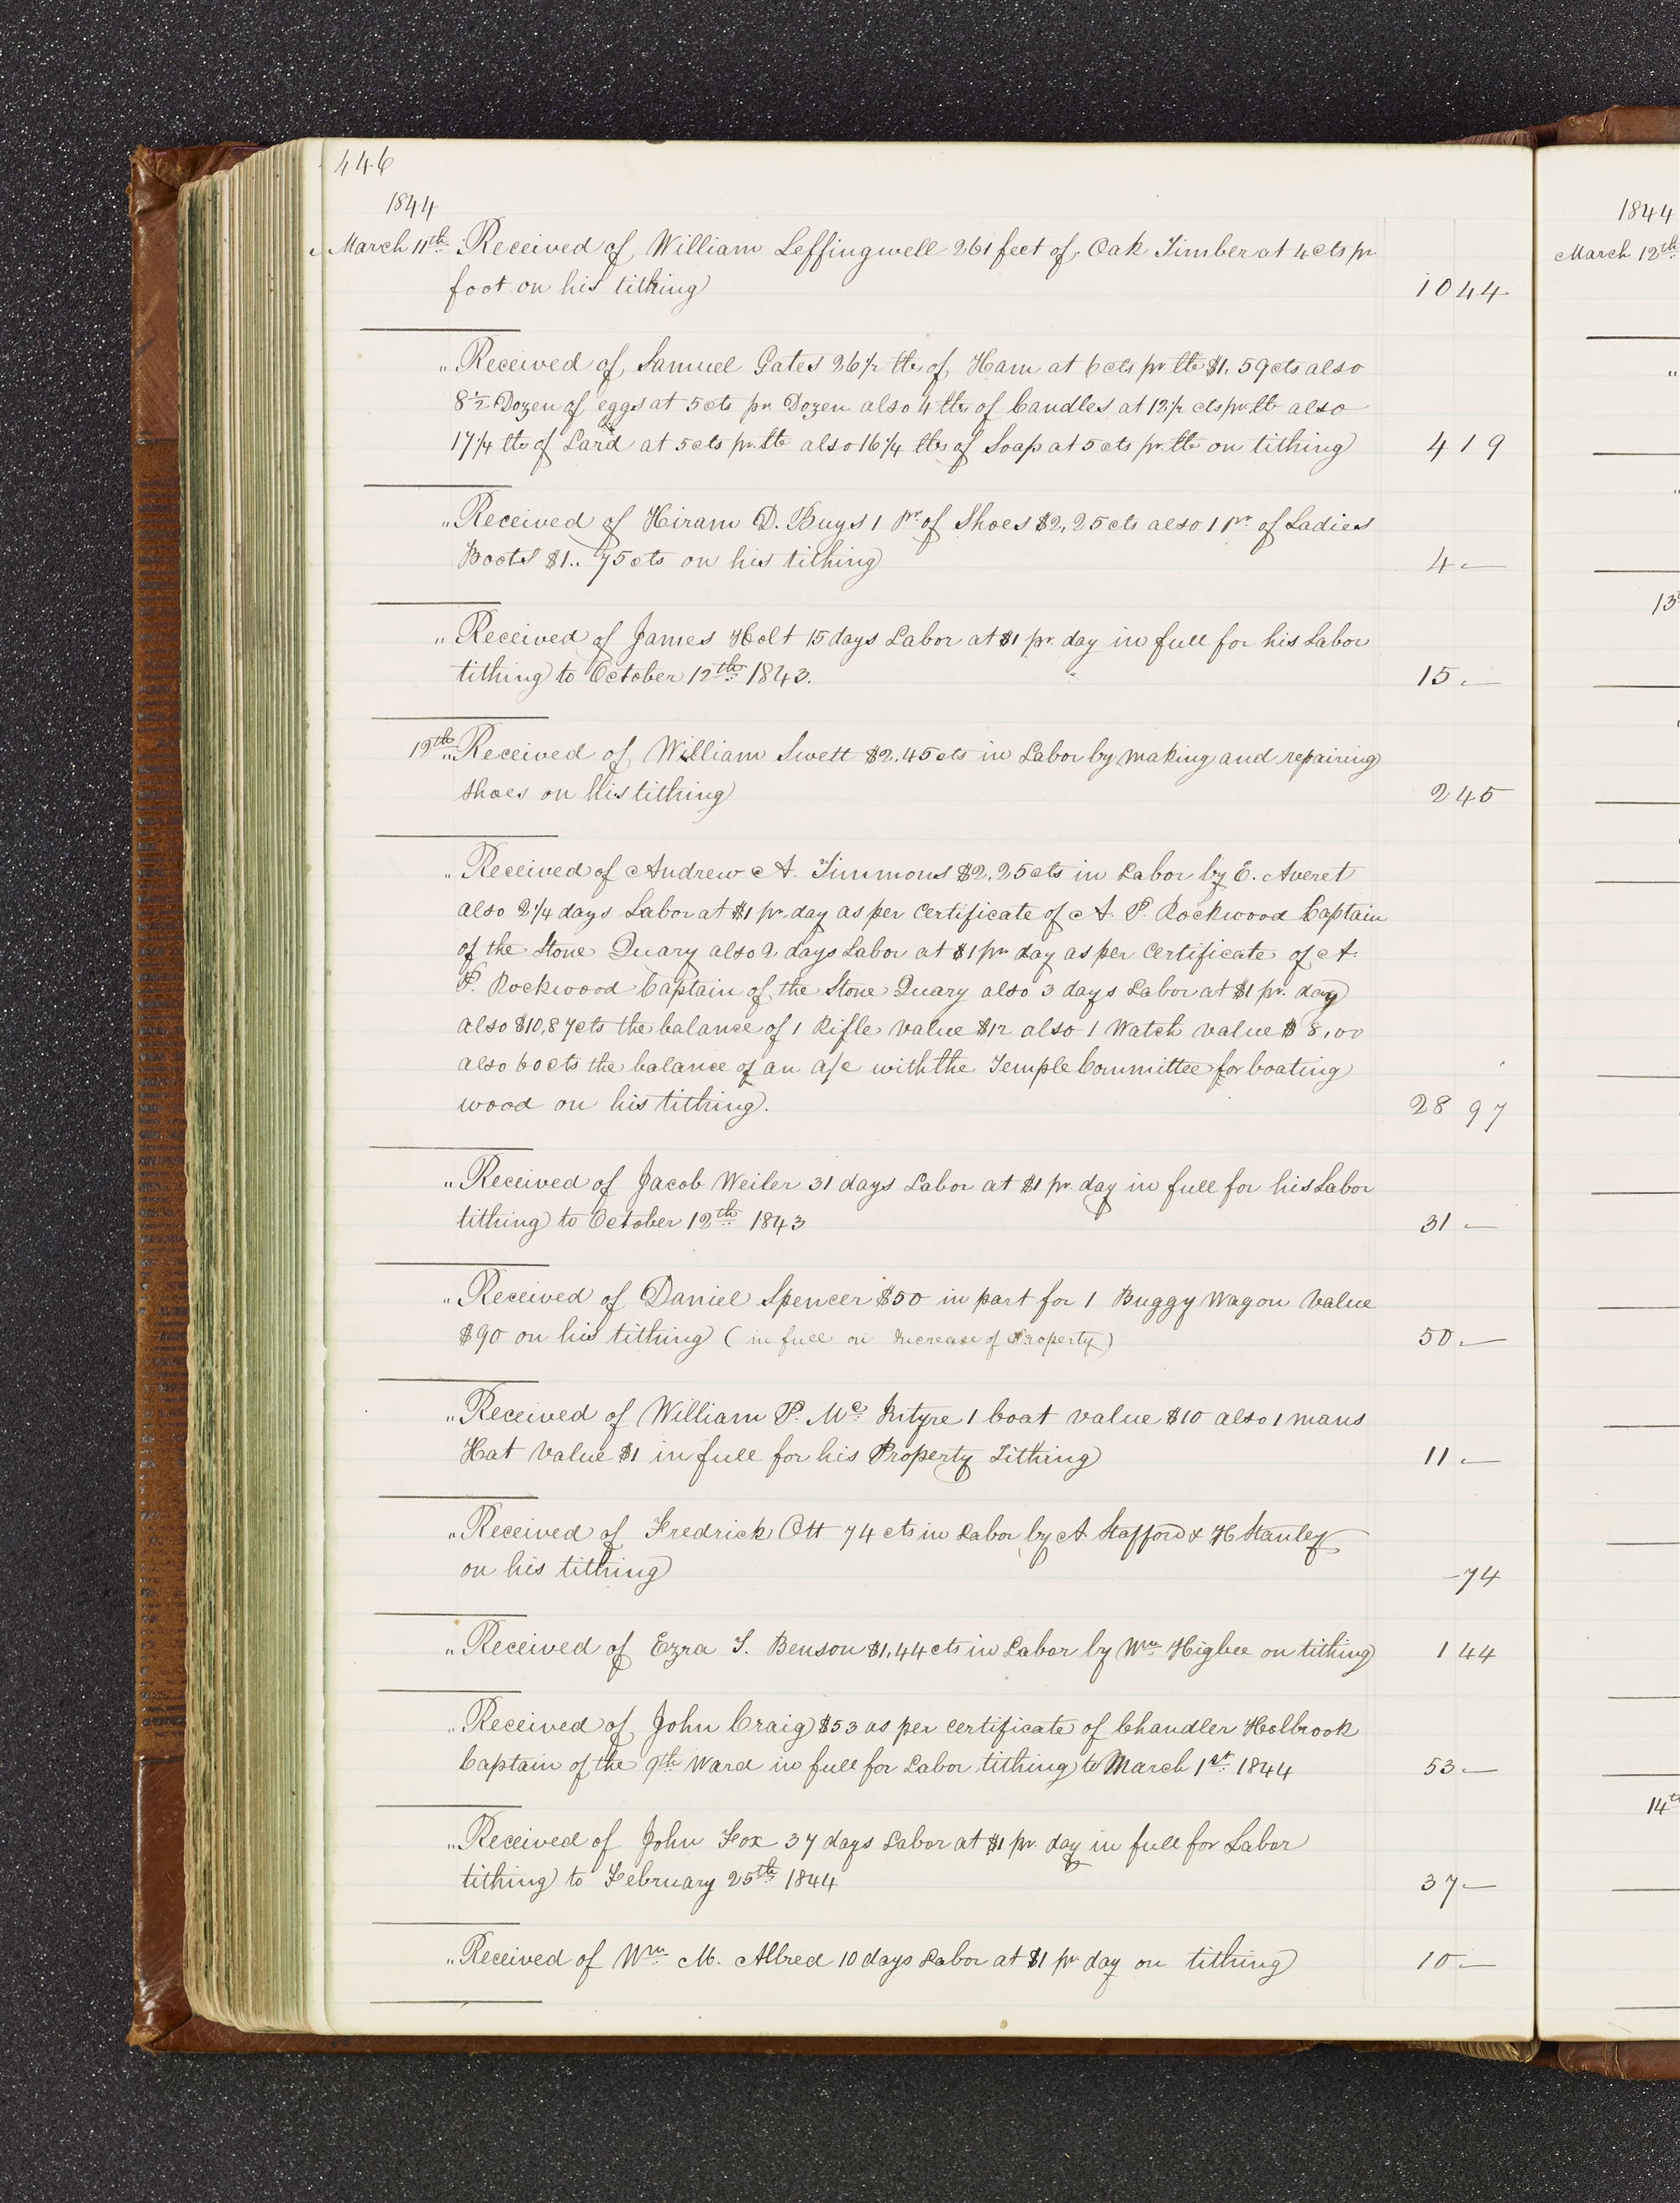 446
1844
March 11th. Received of William Leffingwell 261 feet of Oak Timber at 4 cts pr
foot on his tithing 10 44
" Received of Samuel Gates 26 1/2 lbs of Ham at 6 cts pr lb $1.59 cts also
8 1/2 Dozen of eggs at 5 cts pr Dozen also 4 lbs of Candles at 12 1/2 cts pr lb also
17 1/4 lb of Lard at 5 cts pr lb also 16 1/4 lbs of Soap at 5 cts pr. lb on tithing 4 19
" Received of Hiram D. Buys 1 pr of Shoes $2,25 cts also 1 pr. of Ladies
Boots $1..75 cts on his tithing 4 —
" Received of James Holt 15 days Labor at $1 pr. day in full for his Labor
tithing to October 12th. 1843. 15 —
12th " Received of William Swett $2.45 cts in Labor by making and repairing
shoes on his tithing 2 45
" Received of Andrew A. Timmons $2.25 cts in Labor by E. Averet
also 2 1/4 days Labor at $1 pr. day as per Certificate of A. P. Rockwood Captain
of the Stone Quary also 2 days Labor at $1 pr day as per Certificate of A.
P. Rockwood Captain of the Stone Quary also 3 days Labor at $1 pr. day
also $10,87 cts the balance of 1 Rifle value $12 also 1 Watch value $8,00
also 60 cts the balance of an a/c with the Temple Committee for boating
wood on his tithing. 28 97
" Received of Jacob Weiler 31 days Labor at $1 pr. day in full for his Labor
tithing to October 12th. 1843 31 —
" Received of Daniel Spencer $50 in part for 1 Buggy Wagon Value
$90 on his tithing (in full on Increase of Property) 50 —
" Received of William P. Mc. Intyre 1 boat value $10 also 1 mans
Hat Value $1 in full for his Property Tithing 11 —
" Received of Fredrick Ott 74 cts in Labor by A. Stafford & H Stanley
on his tithing —74
" Received of Ezra T. Benson $1,44 cts in Labor by Wm. Higbee on tithing 1 44
" Received of John Craig $53 as per certificate of Chandler Holbrook
Captain of the 9th Ward in full for Labor tithing to March 1st. 1844 53 —
" Received of John Fox 37 days Labor at $1 pr. day in full for Labor
tithing to February 25th. 1844 37 —
" Received of Wm. M. Allred 10 days Labor at $1 pr day on tithing 10 —
1844
March 12th.
"
13
14t